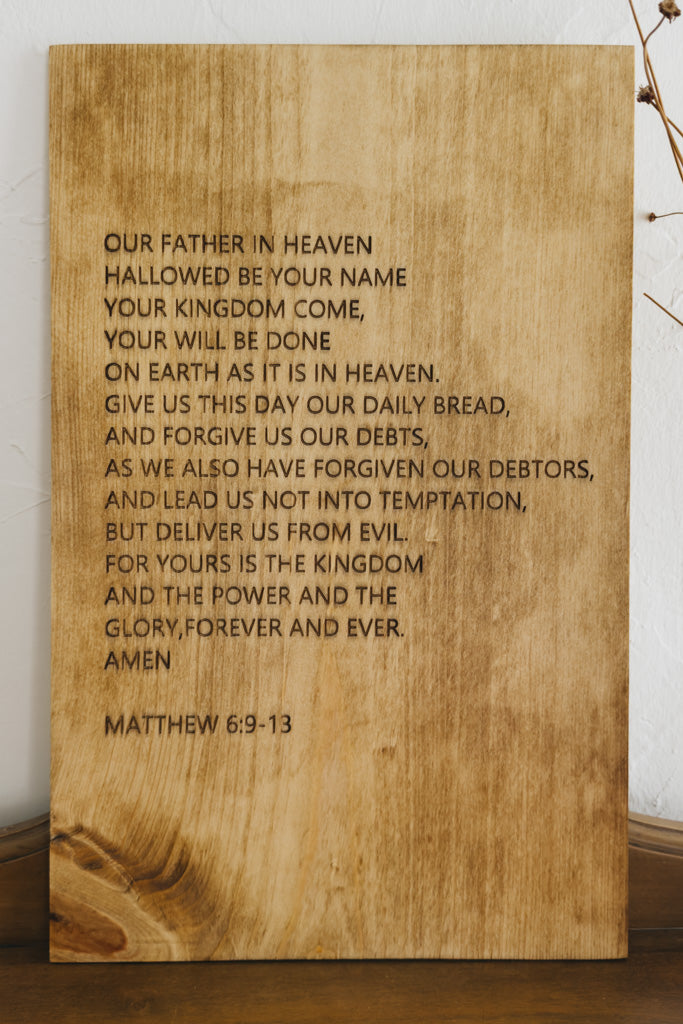 OUR FATHER IN HEAVEN
HALLOWED BE YOUR NAME
YOUR KINGDOM COME,
YOUR WILL BE DONE
ON EARTH AS IT IS IN HEAVEN.
GIVE US THIS DAY OUR DAILY BREAD,
AND FORGIVE US OUR DEBTS,
AS WE ALSO HAVE FORGIVEN OUR DEBTORS,
AND LEAD US NOT INTO TEMPTATION,
BUT DELIVER US FROM EVIL.
FOR YOURS IS THE KINGDOM
AND THE POWER AND THE
GLORY,FOREVER AND EVER.
AMEN
MATTHEW 6:9-13